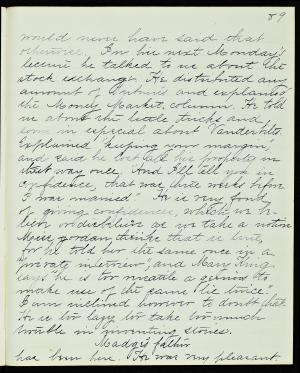 59
would never have said that
otherwise. For his next Monday's
lecture he talked to us about the
stock exchange. He distributed any
amount of and explained
the Money Market column. He told
us about the little tricks and
some in especial about Vanderbilt.
Explained "keeping your margin",
and said he lost all his property in
that way once. "And I'll tell you in
confidence, that was three weeks before
I was married." He is very fond
of giving confidences, which we be-
lieve or disbelieve as we take a notion
Miss thinks that is true,
for he told her the same once in a
"private interview", and Miss King
says "he is too versatile a genius to
make use of the same lie twice".
I am inclined however to doubt that.
He is too lazy to take too much
trouble in inventing stories.
Madge's father
has been here. He was very pleasant.